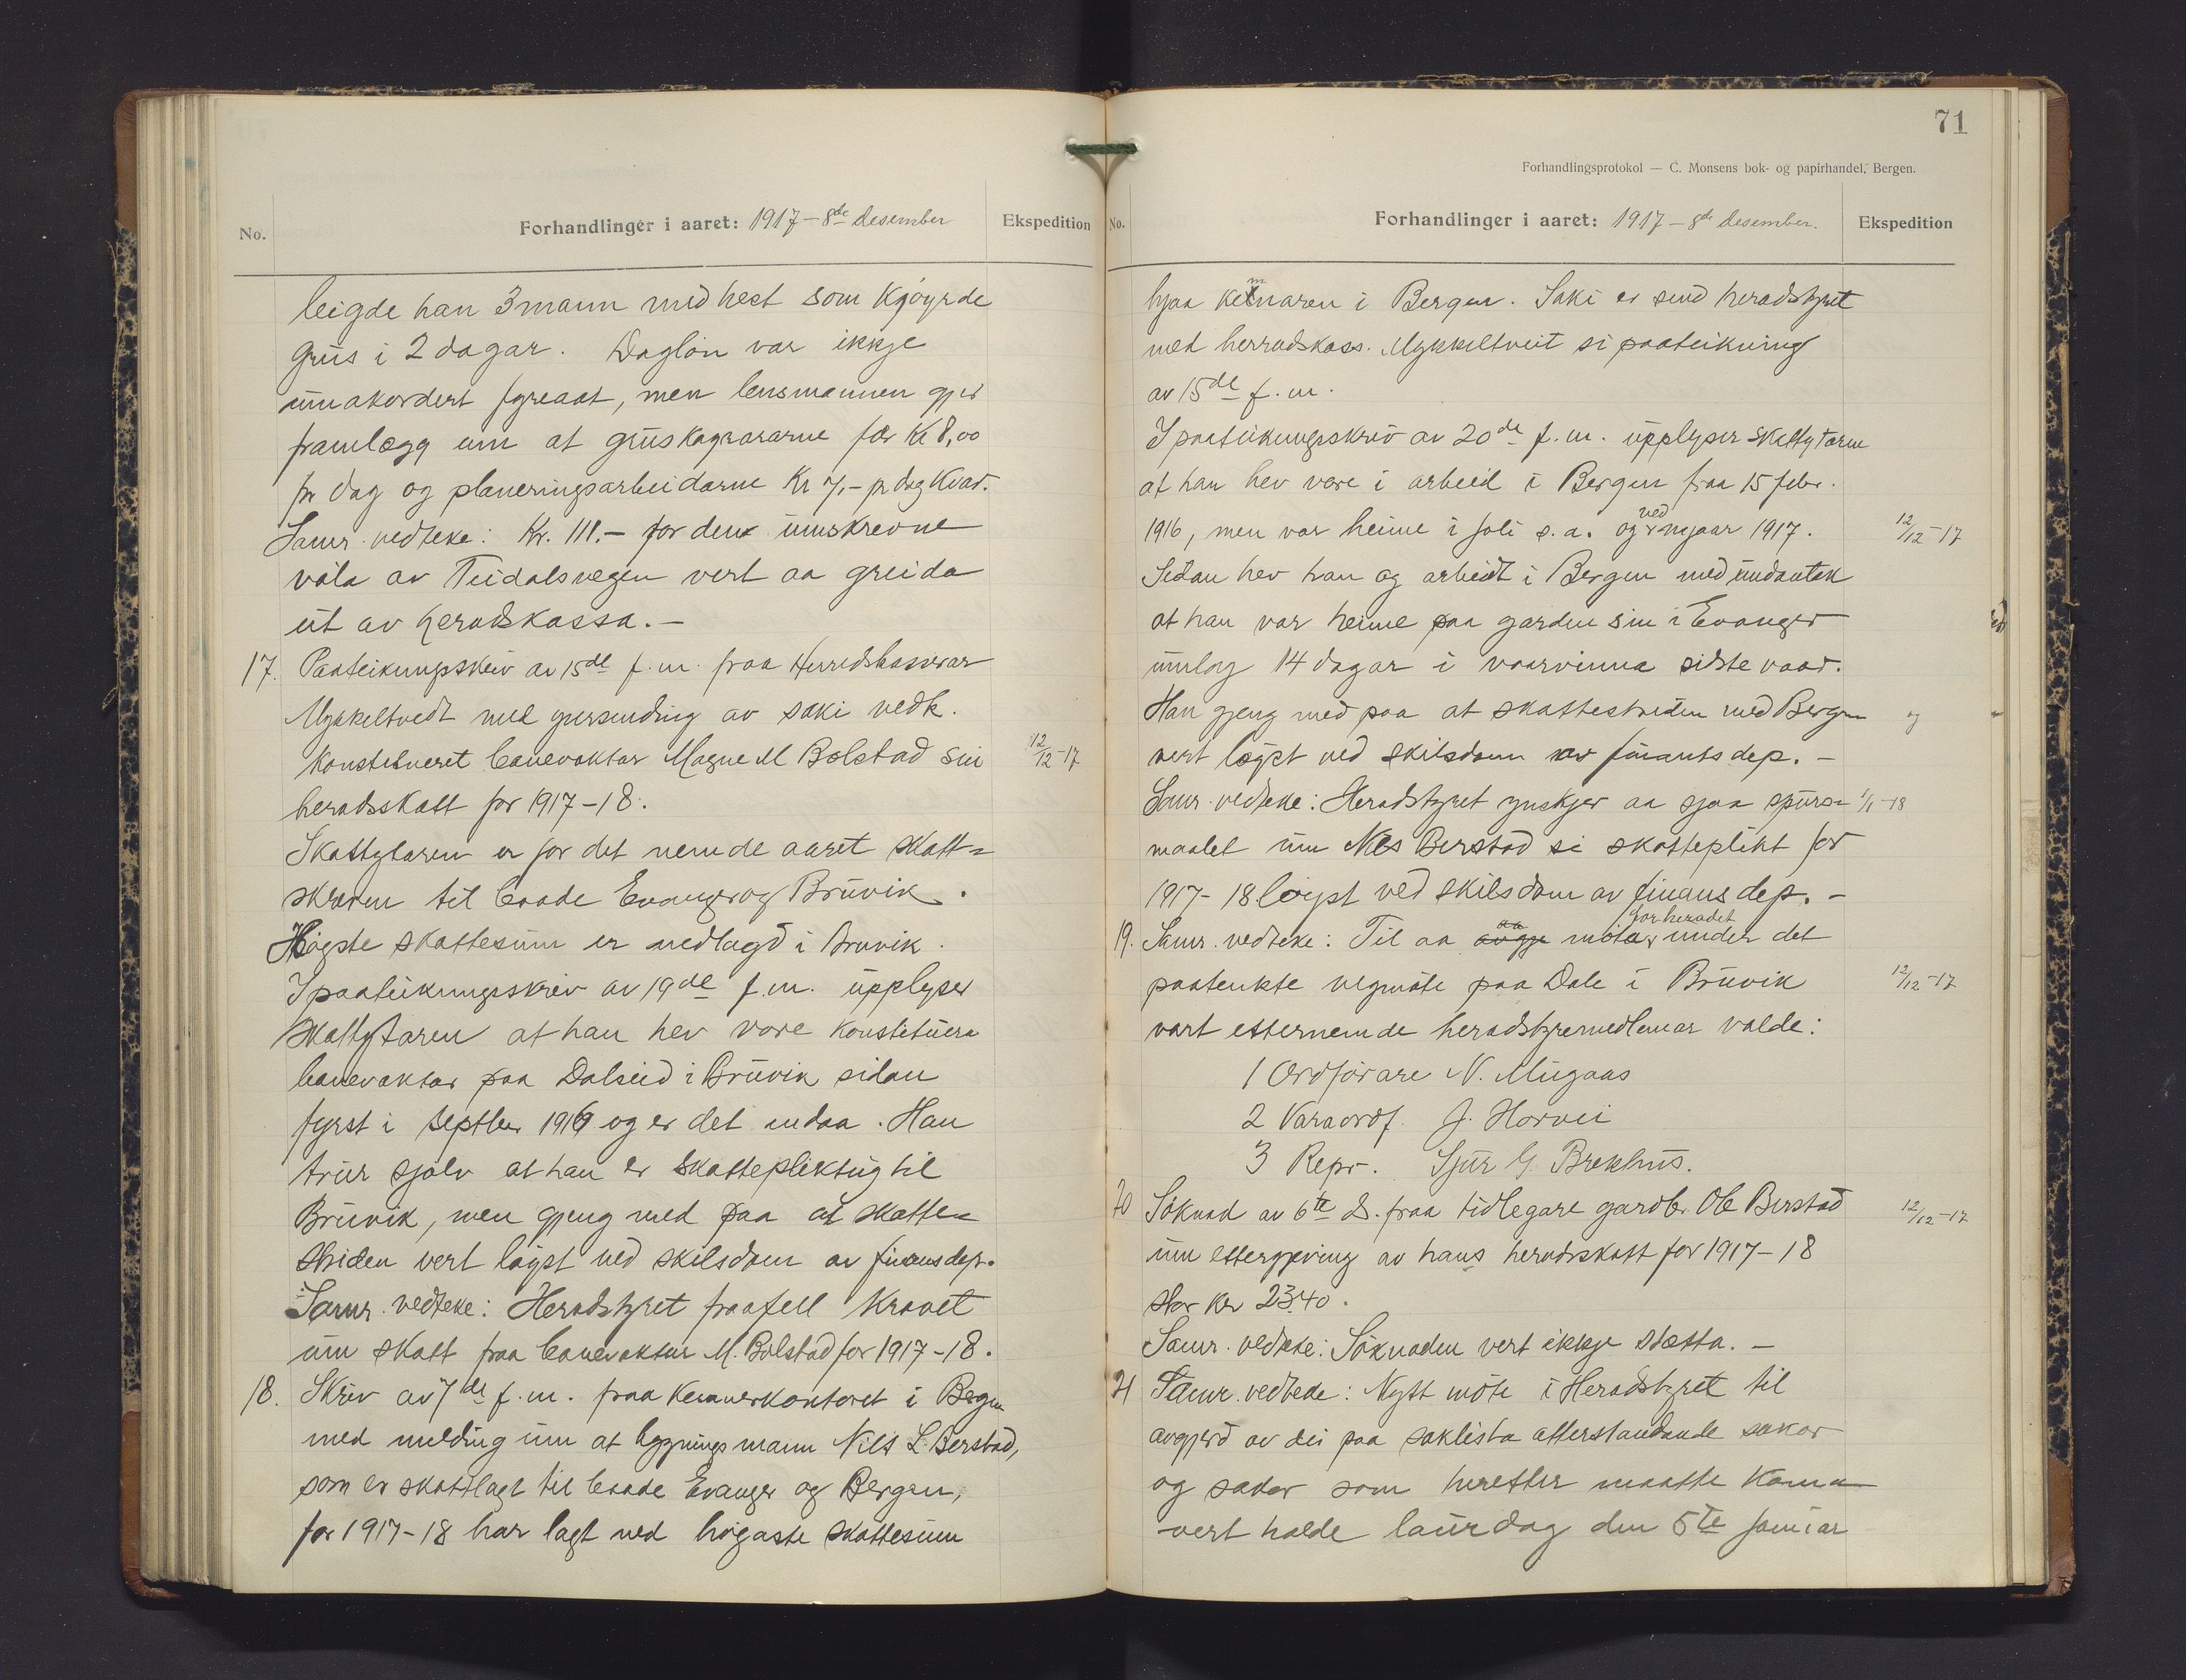 No.
Forhandlinger i aaret: 1917 – 8de Desember
Ekspedition
leigde han 3 mann med hest som kjøyrde
grus i 2 dagar. Dagløn var ikkje
umakordert fyreaat, men lensmannen gjer
framlegg um at gruskøyrararne fær Kr 8,00
pr dag og planeringsarbeidarne Kr 7,– pr dag kvar.
Samr. vedteke: Kr. 111.– for den umskrevne
vøla av Teidalsvegen vert aa greida
ut av heradskassa.–
17. Paateikningsskriv av 15de f.m. fraa Herredskasserar
Mykkeltvedt med yversending av saki vedk.
konstitueret banevaktar Magne M Bolstad sin
12/12-17
heradsskatt for 1917–18.
Skattytaren er for det nemde aaret skatt=
skreven til baade Evanger og Bruvik.
Høgste skattesum er nedlagd i Bruvik.
I paateikningsskriv av 19de f.m. upplyser
skattytaren at han hev vore konstituera
banevaktar paa Dalseid i Bruvik sidan
fyrst i septber 1916 og er det endaa. Han
trur sjølv at han er skattepliktug til
Bruvik, men gjeng med paa at skatte=
striden vert løyst ved skilsdom av finansdep.
Samr. vedteke: Heradstyret fraafell kravet
um skatt fraa banevaktar M. Bolstad for 1917–18.
18. Skriv av 7de f.m. fraa Kemnerkontoret i Bergen
med melding um at bygningsmann Nils L. Berstad,
som er skattlagt til baade Evanger og Bergen,
for 1917–18 har lagt ned høgaste skattesum
71
Forhandlingsprotokol — C. Monsens bok- og papirhandel, Bergen.
No.
Forhandlinger i aaret: 1917 – 8de Desember.
Ekspedition
hjaa kemnaren i Bergen. Saki er send heradstyret
med herradskass. Mykkeltveit si paateikning
av 15de f.m.
I paateikningsskriv av 20de f.m. upplyser skattytaren
at han hev vore i arbeid i Bergen fraa 15 febr.
1916, men var heime i juli s.a. og ved nyaar 1917.
12/12-17
Sidan hev han og arbeidt i Bergen med undantak
at han var heime paa garden sin i Evanger
umlag 14 dagar i vaarvinna sidste vaar.
Han gjeng med paa at skattestriden med Bergen
vert løyst ved skilsdom av finantsdep.–
Samr. vedteke: Heradstyret ynskjer aa sjaa spurs=
1/1-18
maalet um Nils Berstad si skatteplikt for
1917–18 løyst ved skilsdom av finansdep.–
19. Samr. vedteke: Til aa møta for heradet under det
paatenkte vegmøte paa Dale i Bruvik
12/12-17
vart etternemde heradstyremedlemar valde:
1 Ordførare N. Mugaas
2 Varaordf. J. Horvei
3 Repr. Sjur G. Brekhus.
20 Søknad av 6te ds. fraa tidlegare gardbr. Ole Berstad
12/12-17
um ettergjeving av hans heradsskatt for 1917–18
stor kr 23.40.
Samr. vedteke: Søknaden vert ikkje støtta.–
21 Samr. vedteke: Nytt møte i Heradstyret til
avgjerd av dei paa saklista atterstandande saker
og saker som heretter maatte koma
vert halde laurdag den 5te januar